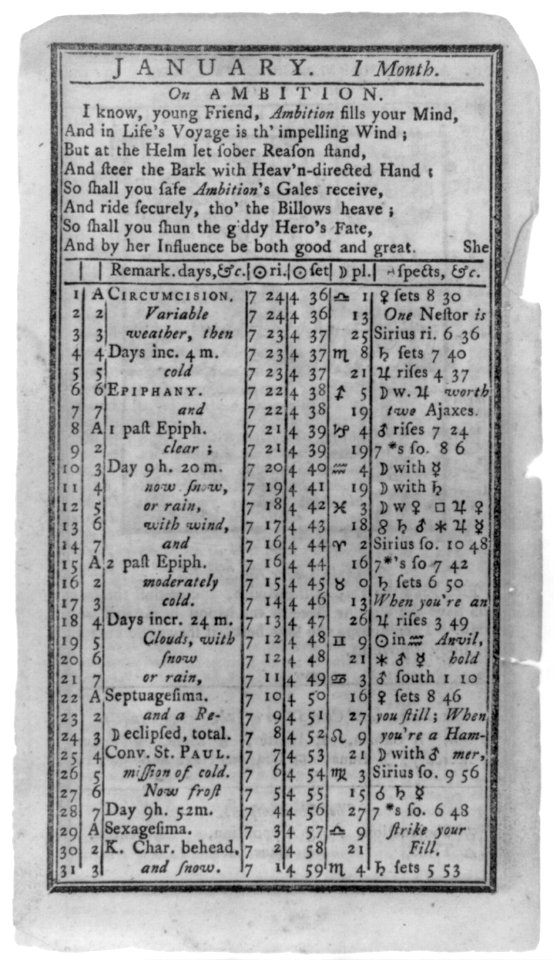 JANUARY. I Month.
On AMBITION.
I know, young Friend, Ambition fills your Mind,
And in Life's Voyage is th' impelling Wind ;
But at the Helm let ſober Reaſon ſtand,
And ſteer the Bark with Heav'n-directed Hand :
So ſhall you ſafe Ambition's Gales receive,
And ride ſecurely, tho' the Billows heave ;
So ſhall you ſhun the g ddy Hero's Fate,
And by her Influence be both good and great. She
Remark. days, &c. ☉ ri. ☉ ſet ☽ pl. ſpects, &c.
1 A CIRCUMCISION. 7 24 4 36 ♎ 1 ♀ ſets 8 30
2 2 Variable 7 24 4 36 13 One Neſtor is
3 3 weather, then 7 23 4 37 25 Sirius ri. 6 36
4 4 Days inc. 4 m. 7 23 4 37 ♏ 8 ♄ ſets 7 40
5 5 cold 7 23 4 37 21 ♃ riſes 4 37
6 6 EPIPHANY. 7 22 4 38 ♐ 5 ☽ w. ♃ worth
7 7 and 7 22 4 38 19 two Ajaxes.
8 A 1 paſt Epiph. 7 21 4 39 ♑ 4 ♂ riſes 7 24
9 2 clear ; 7 21 4 39 19 7 *s ſo. 8 6
10 3 Day 9 h. 20 m. 7 20 4 40 ♒ 4 ☽ with ☿
11 4 now ſnow, 7 19 4 41 19 ☽ with ♄
12 5 or rain, 7 18 4 42 ♓ 3 ☽ w ♀ □ ♃ ♀
13 6 with wind, 7 17 4 43 18 ♄ ♂ * ♃ ☿
14 7 and 7 16 4 44 ♈ 2 Sirius ſo. 10 48
15 A 2 paſt Epiph. 7 16 4 44 16 7*'s ſo 7 42
16 2 moderately 7 15 4 45 ♉ 0 ♄ ſets 6 50
17 3 cold. 7 14 4 46 13 When you're an
18 4 Days incr. 24 m. 7 13 4 47 26 ♃ riſes 3 49
19 5 Clouds, with 7 12 4 48 ♊ 9 ☉ in ♒ Anvil,
20 6 ſnow 7 12 4 48 21 * ♂ ☿ hold
21 7 or rain, 7 11 4 49 ♋ 3 ♂ ſouth 1 10
22 A Septuageſima. 7 10 4 50 16 ♀ ſets 8 46
23 2 and a Re- 7 9 4 51 27 you ſtill; When
24 3 ☽ eclipſed, total. 7 8 4 52 ♌ 9 you're a Ham-
25 4 Conv. St. PAUL. 7 7 4 53 21 ☽ with ♂ mer,
26 5 miſſion of cold. 7 6 4 54 ♍ 3 Sirius ſo. 9 56
27 6 Now froſt 7 5 4 55 15 ☌ ♄ ☿
28 7 Day 9h. 52m. 7 4 4 56 27 7 *s ſo. 6 48
29 A Sexageſima. 7 3 4 57 ♎ 9 ſtrike your
30 2 K. Char. behead. 7 2 4 58 21 Fill.
31 3 and ſnow. 7 1 4 59 ♏ 4 ♄ ſets 5 53